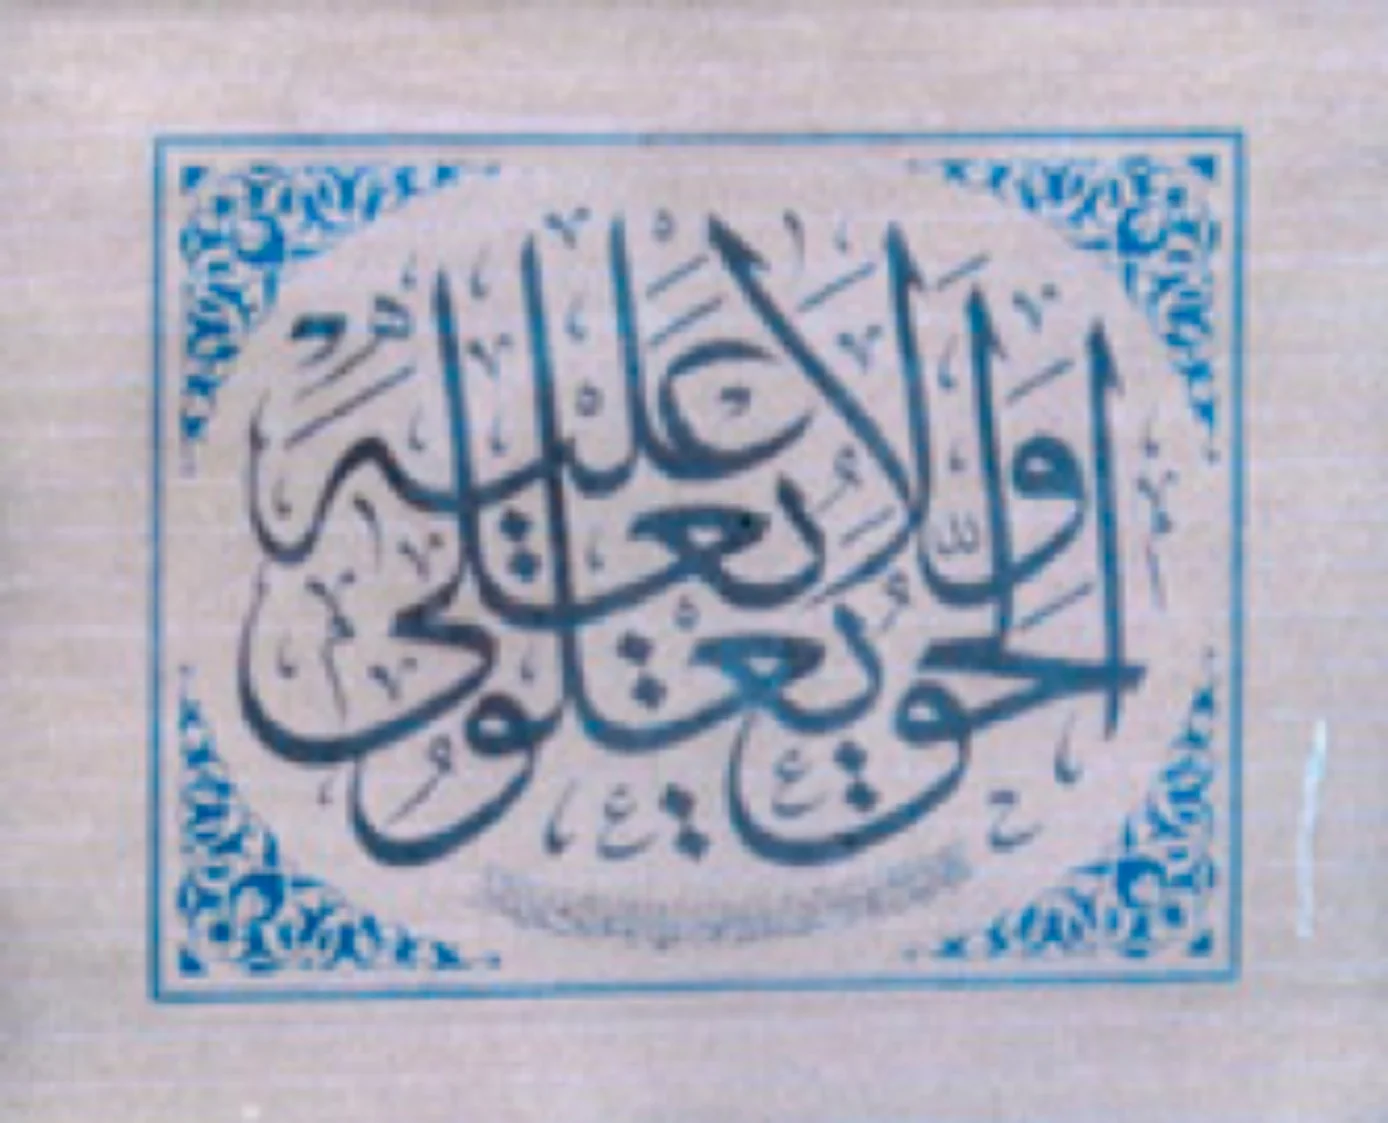 الحق يعلو
ولا يعلى عليه